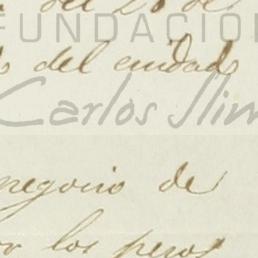 del 28 de
FUNDACIÓN
del cuidado
Carlos Slim
negocio de
por los pesos